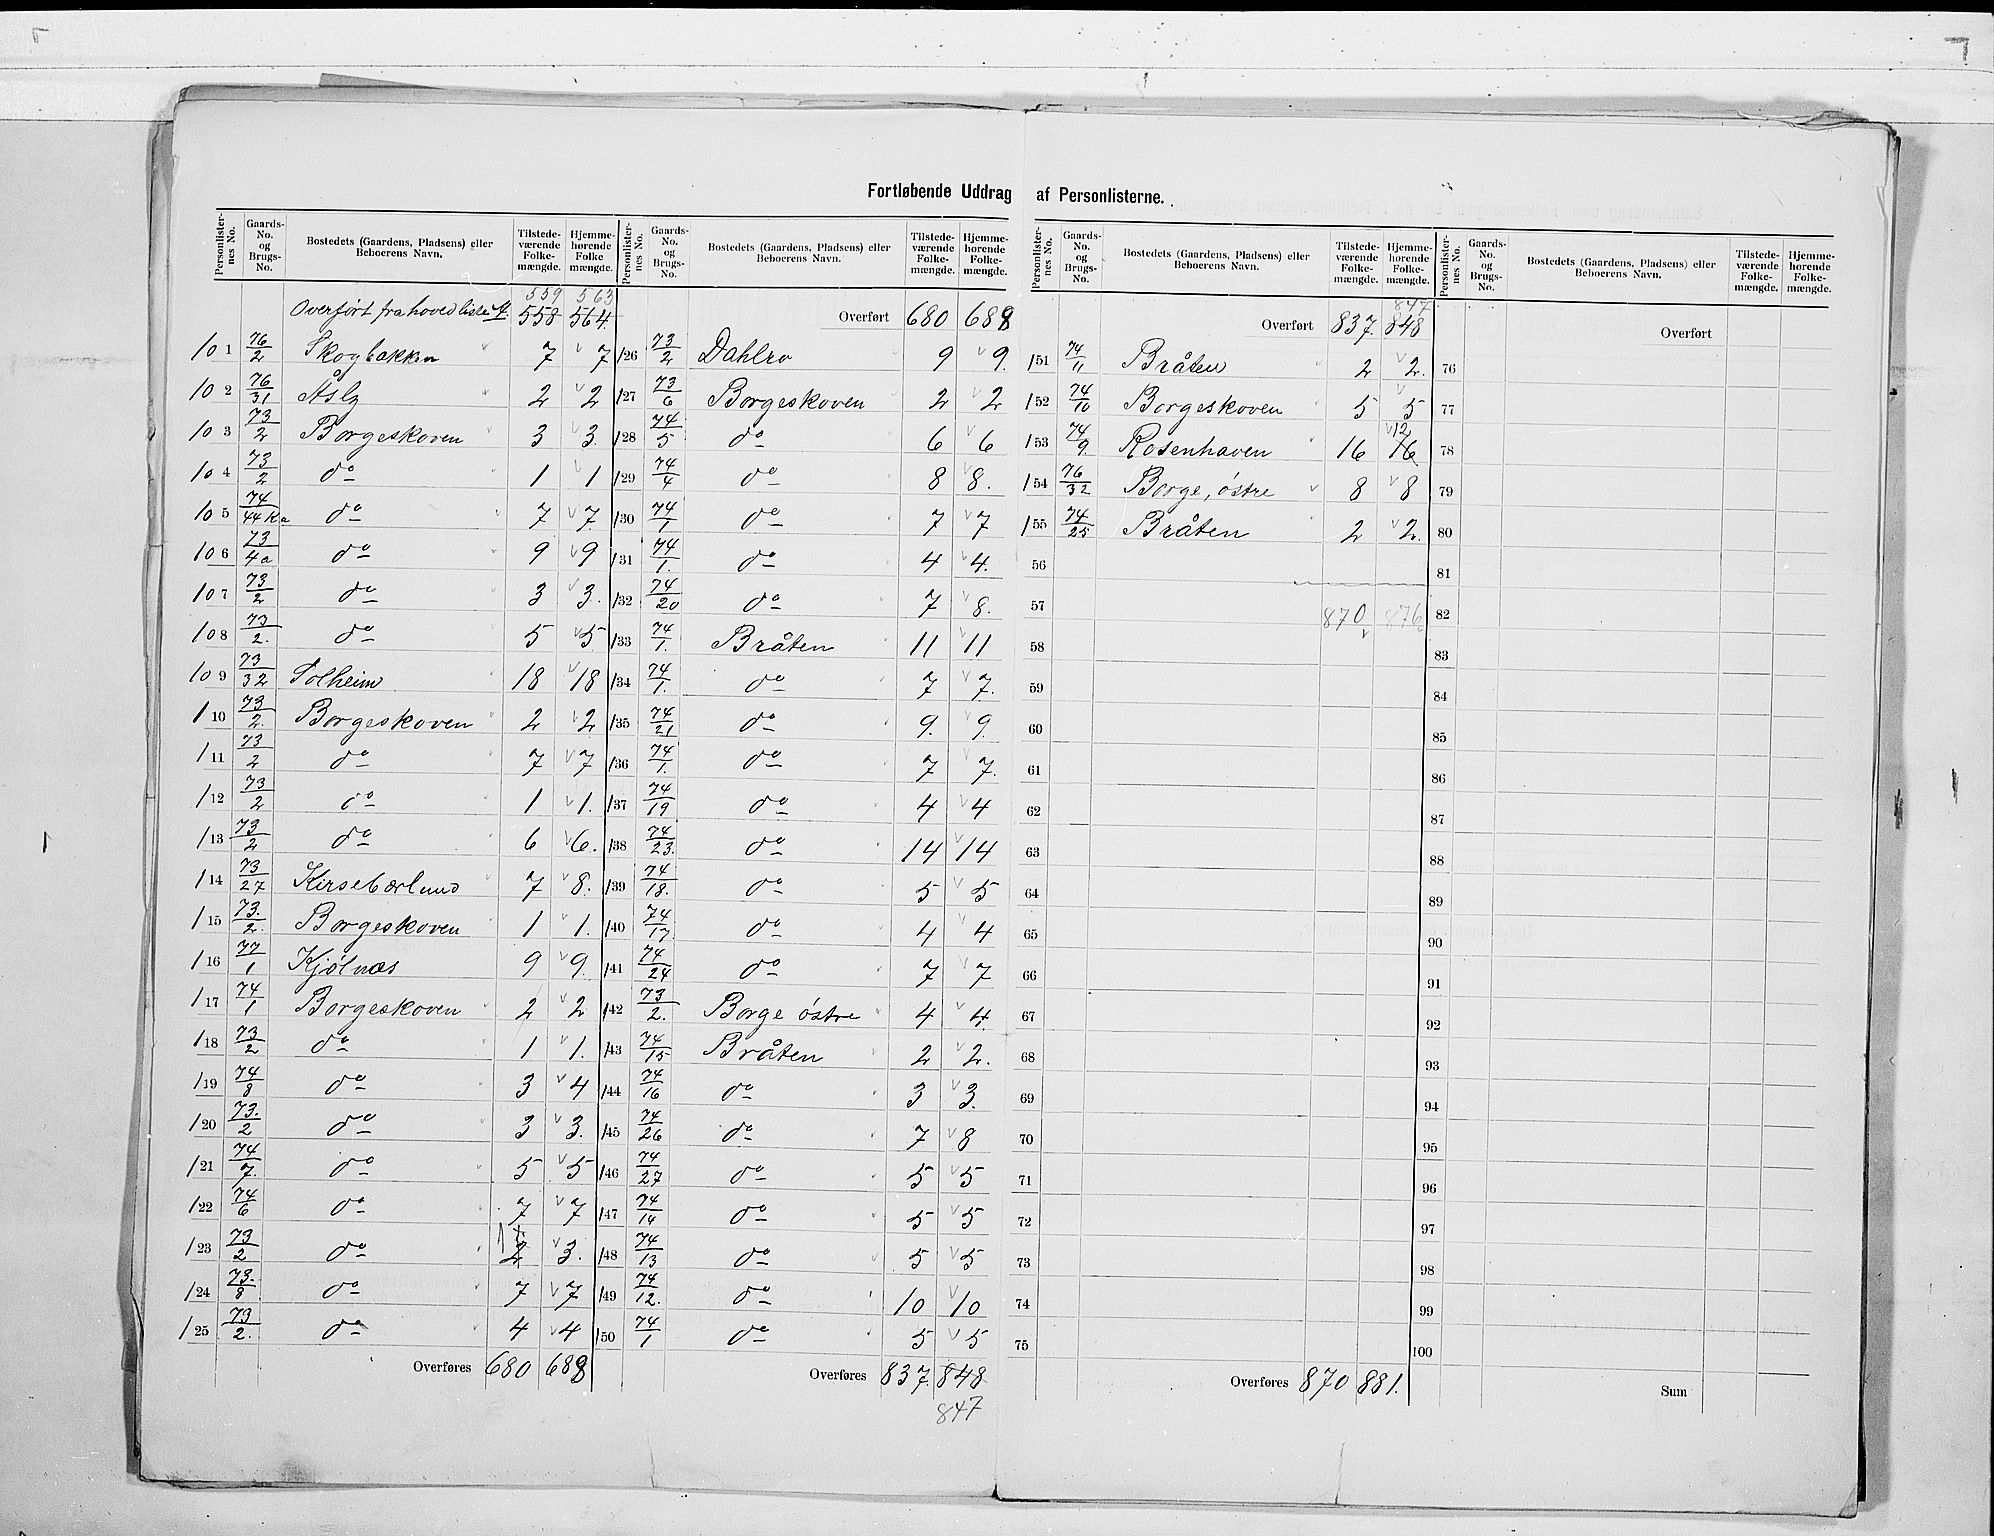 Fortløbende Uddrag af Personlisterne.
Personlister-nes No. Gaards-No. og Brugs-No. Bostedets (Gaardens, Pladsens) eller Beboerens Navn. Tilstede-værende Folke-mængde. Hjemme-hørende Folke mængde.
559 563
Overført fra hovedliste 4. 558 564.
101 76/2 Skogbakken 7 7
102 76/31 Åsly 2 2
103 73/2 Borgeskoven 3 3.
104 73/2 do 1 1
105 74/44 Ka do 7 7.
106 73/4a do 9 9
107 73/2 do 3 3.
108 73/2. do 5 5
109 73/32 Solheim 18 18
110 73/2. Borgeskoven 2 2
111 73/2 do 7 7
112 73/2 do 1 1.
113 73/2 do 6 6.
114 73/27 Kirsebærlund 7 8.
115 73./2. Borgeskoven 1 1.
116 77/1 Kjølnæs 9 9.
117 74/1 Borgeskoven 2 2
118 73/2 do 1 1.
119 74/8 do 3 4
120 73./2 do 3 3.
121 74/7. do 5 5
122 74/6 do 7 7
123 73/2 do 2 3.
124 73./8. do 7 7
125 73/2. do 4 4
Overføres 680 688
Personlister-nes No. Gaards-No. og Brugs-No. Bostedets (Gaardens, Pladsens) eller Beboerens Navn. Tilstede-værende Folke-mængde. Hjemme-hørende Folke-mængde.
Overført 680 688
126 73/2 Dahlro 9 9.
127 73/6 Borgeskoven 2 2
128 74/5 do 6 6
129 74/4 do 8 8.
130 74/1 do 7 7
131 74/1. do 4 4.
132 74/20 do 7 8.
133 74/1. Bråten 11 11
134 74/1. do 7 7.
135 74/21 do 9. 9.
136 74/1. do 7 7.
137 74/19 do 4 4
138 74/23. do 14 14
139 74/18. do 5 5
140 74/17. do 4 4
141 74/24 do 7 7
142 73/2. Borge østre 4 4.
143 74/15 Bråten 2 2.
144 74/16 do 3 3.
145 74/26 do 7 8
146 74/27 do 5 5
147 74/14 do 5 5
148 74/13 do 5 5
149 74/12. do 10 10
150 74/1 do 5 5
Overføres 837. 848
847
Personlister-nes No. Gaards-No. og Brugs-No. Bostedets (Gaardens, Pladsens) eller Beboerens Navn. Tilstede-værende Folke-mængde. Hjemme-hørende Folke-mængde.
847
Overført 837. 848
151 74/11 Bråten 2 2.
152 74/10 Borgeskoven 5 5
12
153 74/9. Rosenhaven 16 16
154 76/32 Borge, østre 8 8
155 74/25 Bråten 2 2.
56
57 870 876
58
59
60
61
62
63
64
65
66
67
68
69
70
71
72
73
74
75
Overføres 870 881.
Personlister-nes No. Gaards-No. og Brugs-No. Bostedets (Gaardens, Pladsens) eller Beboerens Navn. Tilstede-værende Folke-mængde. Hjemme-hørende Folke-mængde.
Overført
76
77
78
79
80
81
82
83
84
85
86
87
88
89
90
91
92
93
94
95
96
97
98
99
100
Sum